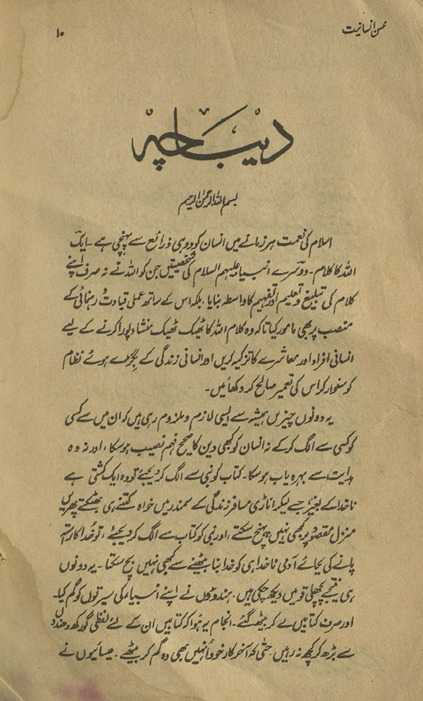 محسن انسانیت
۱۰
دیباچہ
بسم اللہ الرحمٰن الرحیم
اسلام کی نعمت ہر زمانے میں انسان کو دو ہی ذرائع سے پہنچی ہے۔ ایک
اللہ کا کلام۔ دوسرے انبیا علیہم السلام کی شخصیتیں جن کو اللہ نے نہ صرف اپنے
کلام کی تبلیغ و تعلیم اور تفہیم کا واسطہ بنایا، بلکہ اس کے ساتھ عملی قیادت و رہنمائی کے
منصب پر بھی مامور کیا تاکہ وہ کلام اللہ کا ٹھیک ٹھیک منشا پورا کرنے کے لیے
انسانی افراد اور معاشرے کا تزکیہ کریں اور انسانی زندگی کے بگڑے ہوئے نظام
کو سنوار کر اس کی تعمیر صالح کر دکھائیں۔
یہ دونوں چیزیں ہمیشہ سے ایسی لازم و ملزوم رہی ہیں کہ ان میں سے کسی
کو کسی سے الگ کر کے نہ انسان کو کبھی دین کا صحیح فہم نصیب ہو سکا، اور نہ وہ
ہدایت سے بہرہ یاب ہو سکا۔ کتاب کو نبی سے الگ کر دیجئے تو وہ ایک کشتی ہے
ناخدا کے بغیر جسے لیکر اناڑی مسافر زندگی کے سمندر میں خواہ کتنے ہی بھٹکتے پھریں
منزل مقصود پر کبھی نہیں پہنچ سکتے، اور نبی کو کتاب سے الگ کر دیجئے، تو خدا کا راستہ
پانے کی بجائے آدمی ناخدا ہی کو خدا بنا بیٹھنے سے کبھی نہیں بچ سکتا۔ یہ دونوں
ہی نتیجے پچھلی قومیں دیکھ چکی ہیں۔ ہندوؤں نے اپنے انبیاء کی سیرتوں کو گم کیا۔
اور صرف کتابیں لے کر بیٹھ گئے۔ انجام یہ ہوا کہ کتابیں ان کے لئے لفظی گورکھ دھندوں
سے بڑھ کر کچھ نہ رہیں۔ حتیٰ کہ آخر کار خود انہیں بھی وہ گم کر بیٹھے۔ عیسائیوں نے